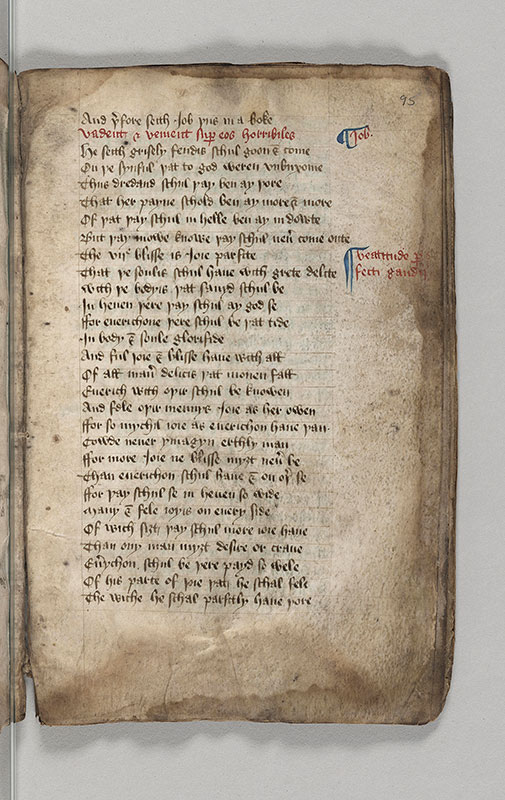 95
And þfore seith Job þus in a boke
Vadent & venient sup eos horribiles
Job.
He seith grisely fendis schul goon & come
On þe synful þat to god weren vnbuxome
Thus dredand schul þay ben ay þore
That her payne schold ben ay more & more
Of þat þay schul in helle ben ay in dowte
But þay mowe knowe þay schul neu come oute
The vij blisse is Joie parfite
beatitudo p
fecti gaudij
That þe soulis schul haue with grete delite
With þe bodyis þat sauyd schul be
In heuen þere þay schul ay god se
ffor euerichone þere schul be þat tide
In body & soule glorifide
And ful ioie & blisse haue with all
Of all man delicis þat monen fall
Euerich with oþir schul be knowen
And fele oþir Joie as her owen
ffor so mychil ioie as euerichon haue þan
Cowde neuer ymagyn erthly man
ffor more Joie ne blisse myȝt neu be
Than euerichon schul haue & on oþ se
ffor þay schul se in heuen so wide
Many & fele ioyis on euery side
Of wich siȝt þay schul more ioie haue
Than ony man myȝt desire or craue
Eûychon schul be þere payd so wele
Of his parte of þat he schal fele
The wiche he schal parfitly haue þore